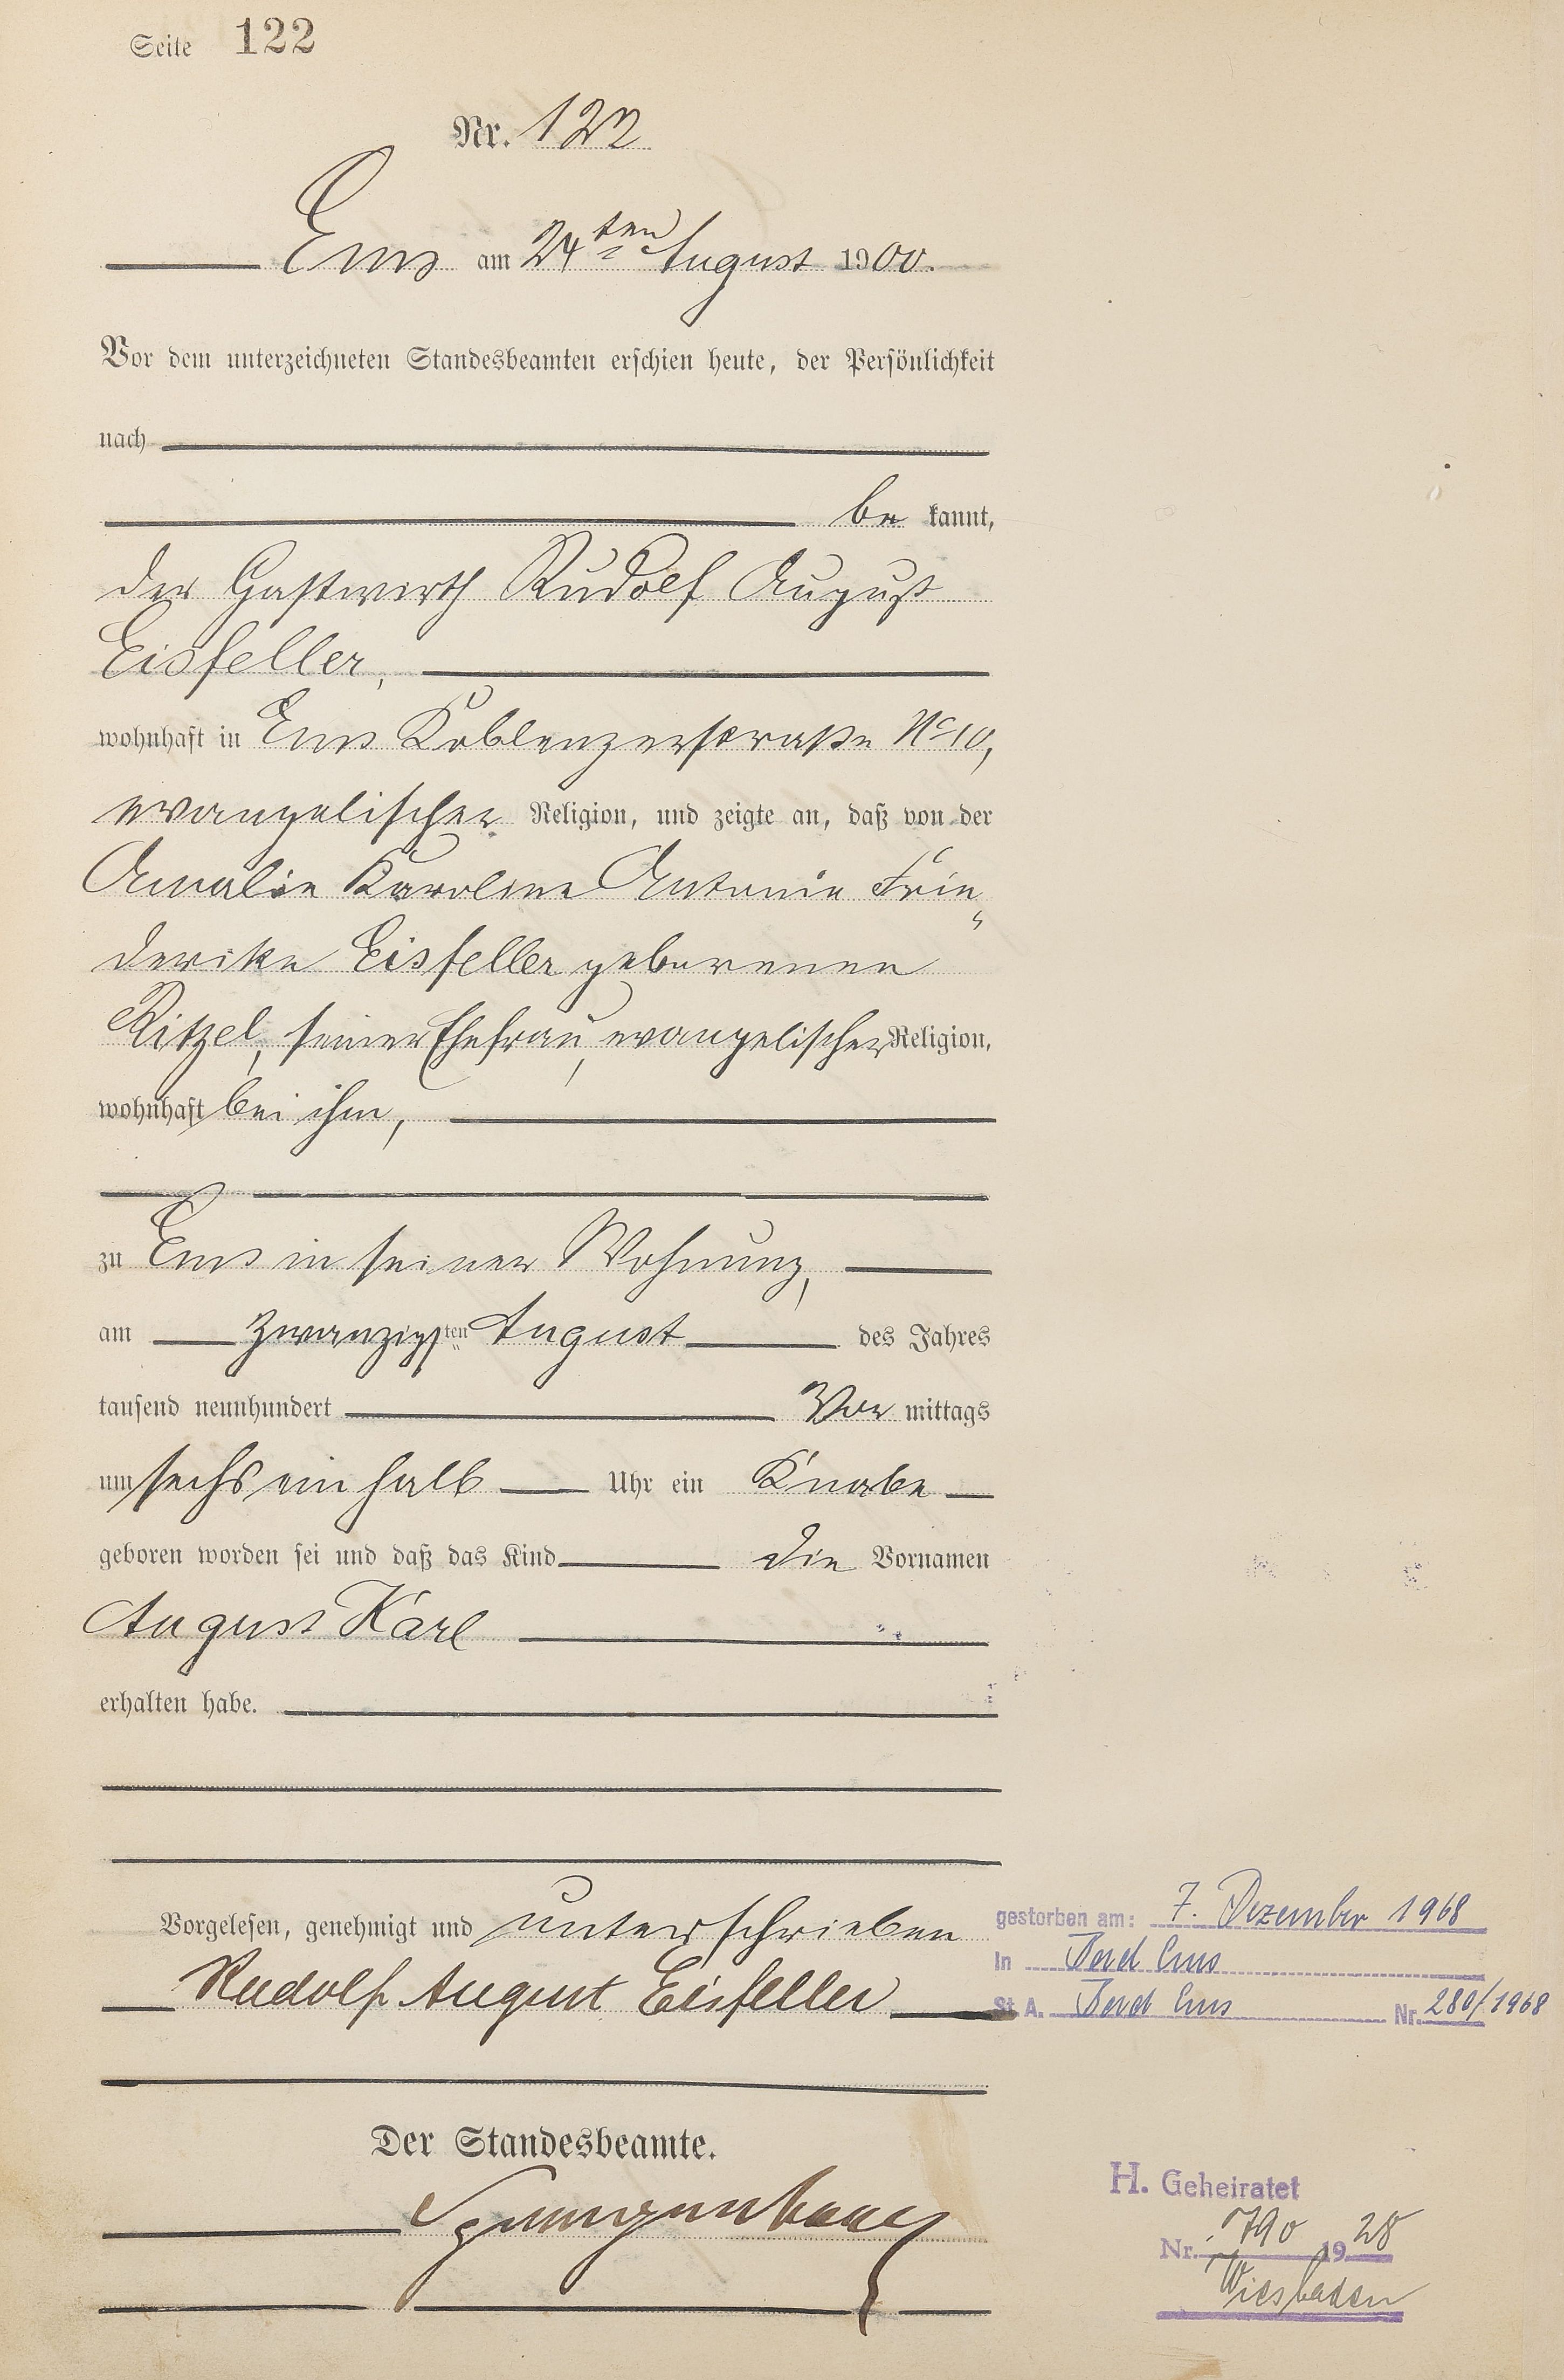 Seite 122
Nr. 122
Ems am 24ten August 1900.
Vor dem unterzeichneten Standesbeamten erschien heute, der Persönlichkeit
nach
be kannt,
der Gastwirth Rudolf August
Eisfeller,
wohnhaft in Ems Koblenzerstraße No 10,
evangelischer Religion, und zeigte an, daß von der
Amalie Karoline Antonie Frie„
derike Eisfeller geborenen
Ritzel, seiner Ehefrau, evangelischer Religion,
wohnhaft bei ihm,
zu Ems in seiner Wohnung,
am zwanzigsten August des Jahres
tausend neunhundert Vor mittags
um sechs ein halb Uhr ein Knabe
geboren worden sei und daß das Kind die Vornamen
August Karl
erhalten habe.
Vorgelesen, genehmigt und unterschrieben
Rudolf August Eisfeller
gestorben am: 7. Dezember 1968
In Bad Ems
St A. Bad Ems Nr. 280/1968
Der Standesbeamte.
H. Geheiratet
Nr. 790 1928
Wiesbaden